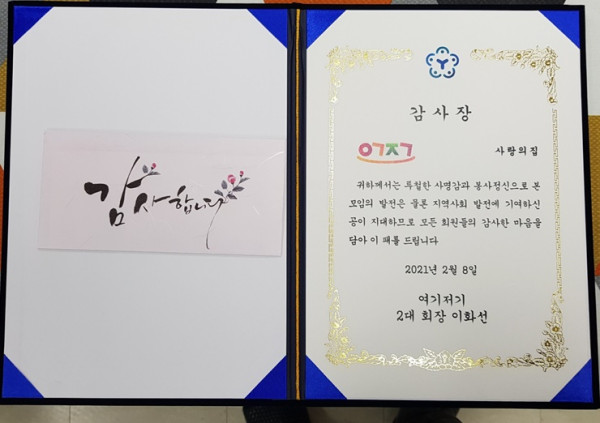 감사합니다
감 사 장
ㅇㄱㅈㄱ
사랑의집
귀하께서는 투철한 사명감과 봉사정신으로 본
모임의 발전은 물론 지역사회 발전에 기여하신
공이 지대하므로 모든 회원들의 감사한 마음을
담아 이 패를 드립니다
2021년 2월 8일
여기저기
2대 회장 이화선